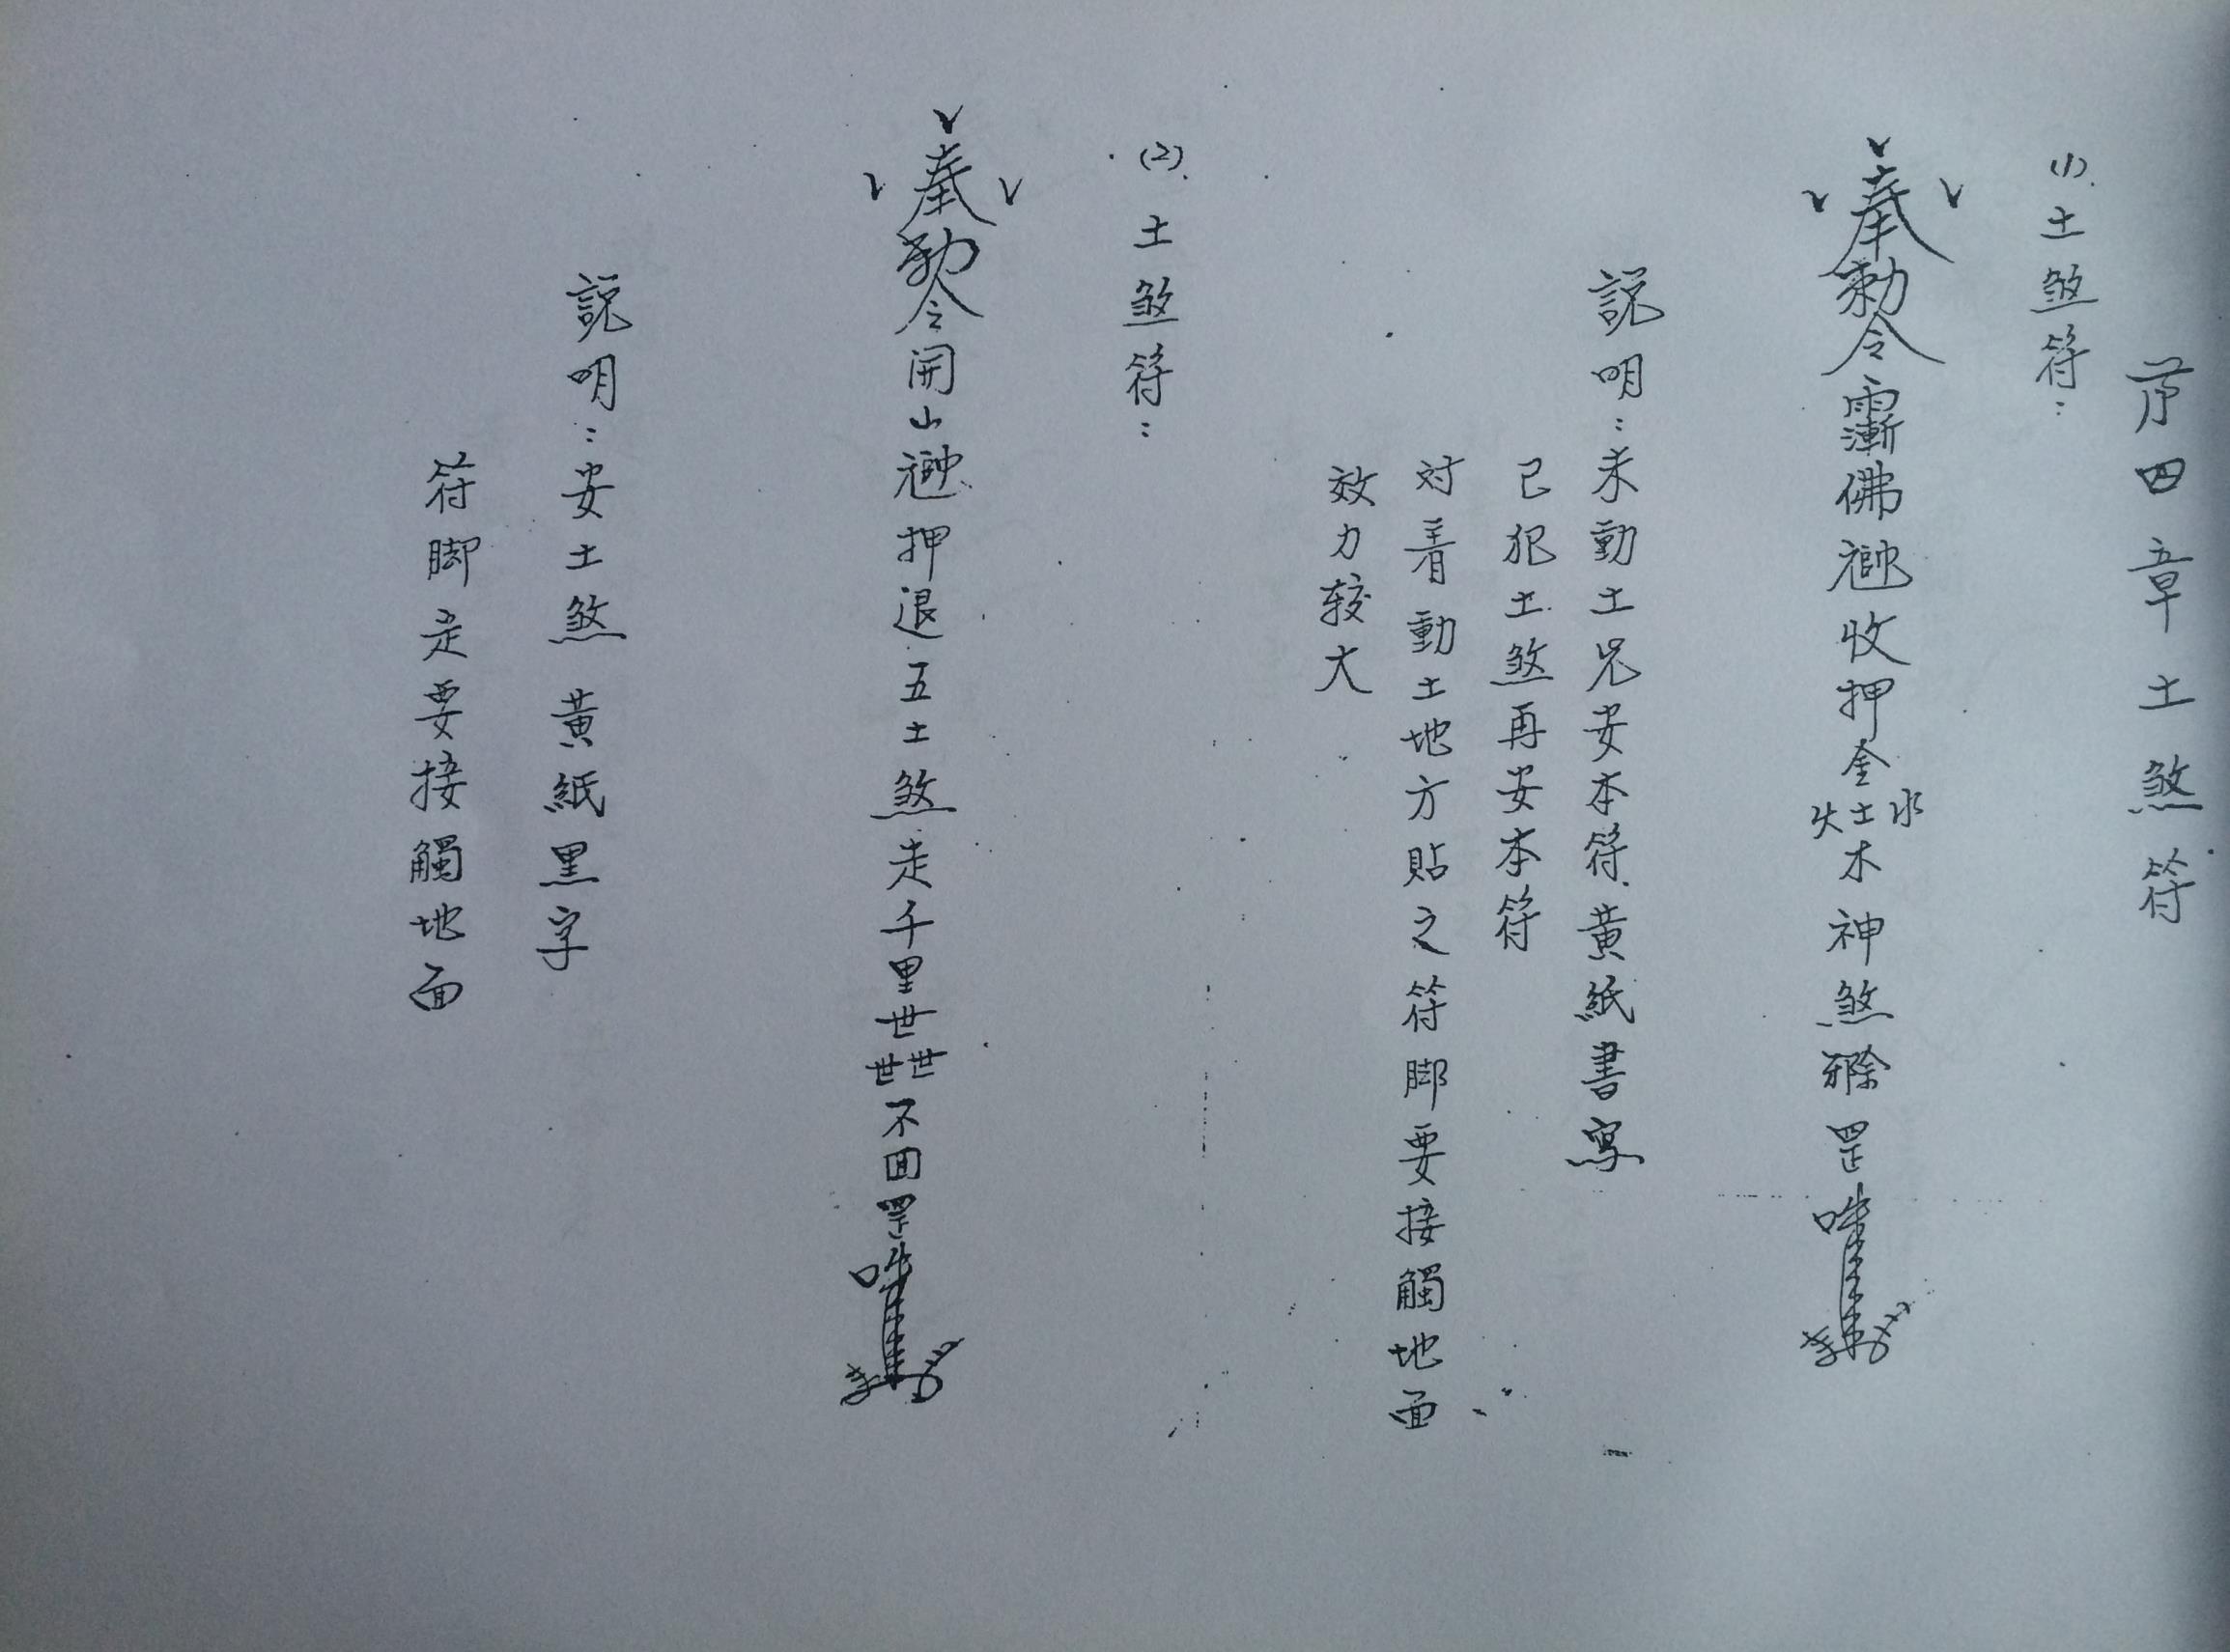 第四章土煞符
(1).土煞符：
奉勅令佛收押金火土水木神煞罡
説明：未動土先安本符.黃紙書寫
已犯土煞再安本符
対着動土地方貼之符脚要接觸地面
效力較大
(2).土煞符：
奉勅令開山押退五土煞走千里世世世不回罡
説明：安土煞 黃紙黑字
符脚走要接觸地面